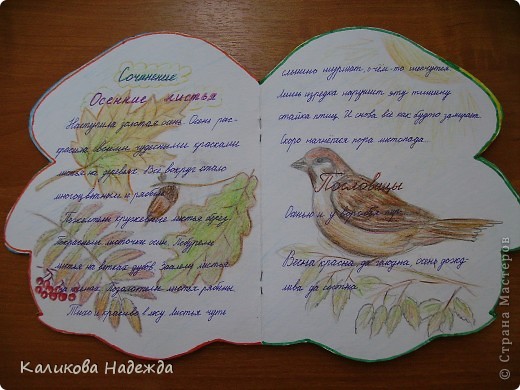 Сочинение
Осенние листья
Наступила золотая осень. Осень рас-
красила своими чудесными красками
листья на деревьях. Всё вокруг стало
многоцветным и рябым.
кружевные листья берёз.
листочки осин. Побурели
листья на ветках дубов. листья
клёнах. Позолотели листья рябины.
Тихо и красиво в лесу. Листья чуть
слышно шуршат, о чём-то шепчутся.
Лишь изредка нарушит эту тишину
стайка птиц. И снова всё как будто замирает.
Скоро начнётся пора листопада.
Пословицы
Осенью и у воробья пир.
Весна красна, да голодна, осень дожд-
лива, да сытна.
Каликова Надежда
© Страна Мастеров